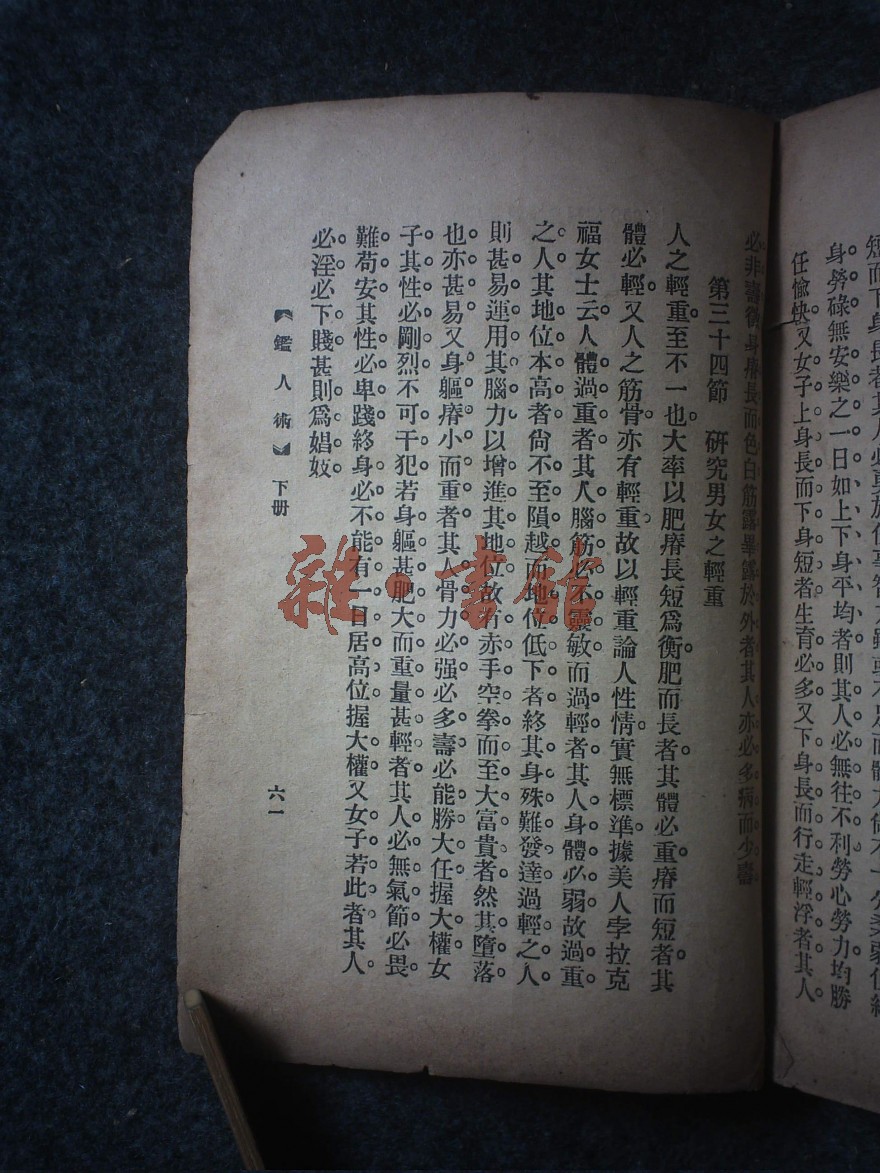 短而下身長者其人必
身勞碌無安樂之一日如上下身平均者則其人必無往不利勞心勞力均勝
任愉快又女子上身長而下身短者生育必多又下身長而行走輕浮者其人
必非壽徵身瘠長而色白筋露畢露於外者其人亦必多病而少壽
第三十四節 研究男女之輕重
人之輕重至不一也大率以肥瘠長短爲衡肥而長者其體必重瘠而短者其
體必輕又人之筋骨亦有輕重故以輕重論人性情實無標準據美人孛拉克
福女士云人體過重者其人腦筋必不靈敏而過輕者其人身體必弱故過重
之人其地位本高者尙不至隕越而地位低下者終其身殊難發達過輕之人
則甚易運用其腦力以增進其地位故有赤手空拳而至大富貴者然其墮落
也亦甚易又身軀瘠小而重者其人骨力必强必多壽必能勝大任握大權女
子其性必剛烈不可干犯若身軀甚肥大而重量甚輕者其人必無氣節必畏
難苟安其性必卑踐終身必不能有一日居高位握大權又女子若此者其人
必淫必下賤甚則爲娼妓
【鑑人術】 下册
六一
雜·書館